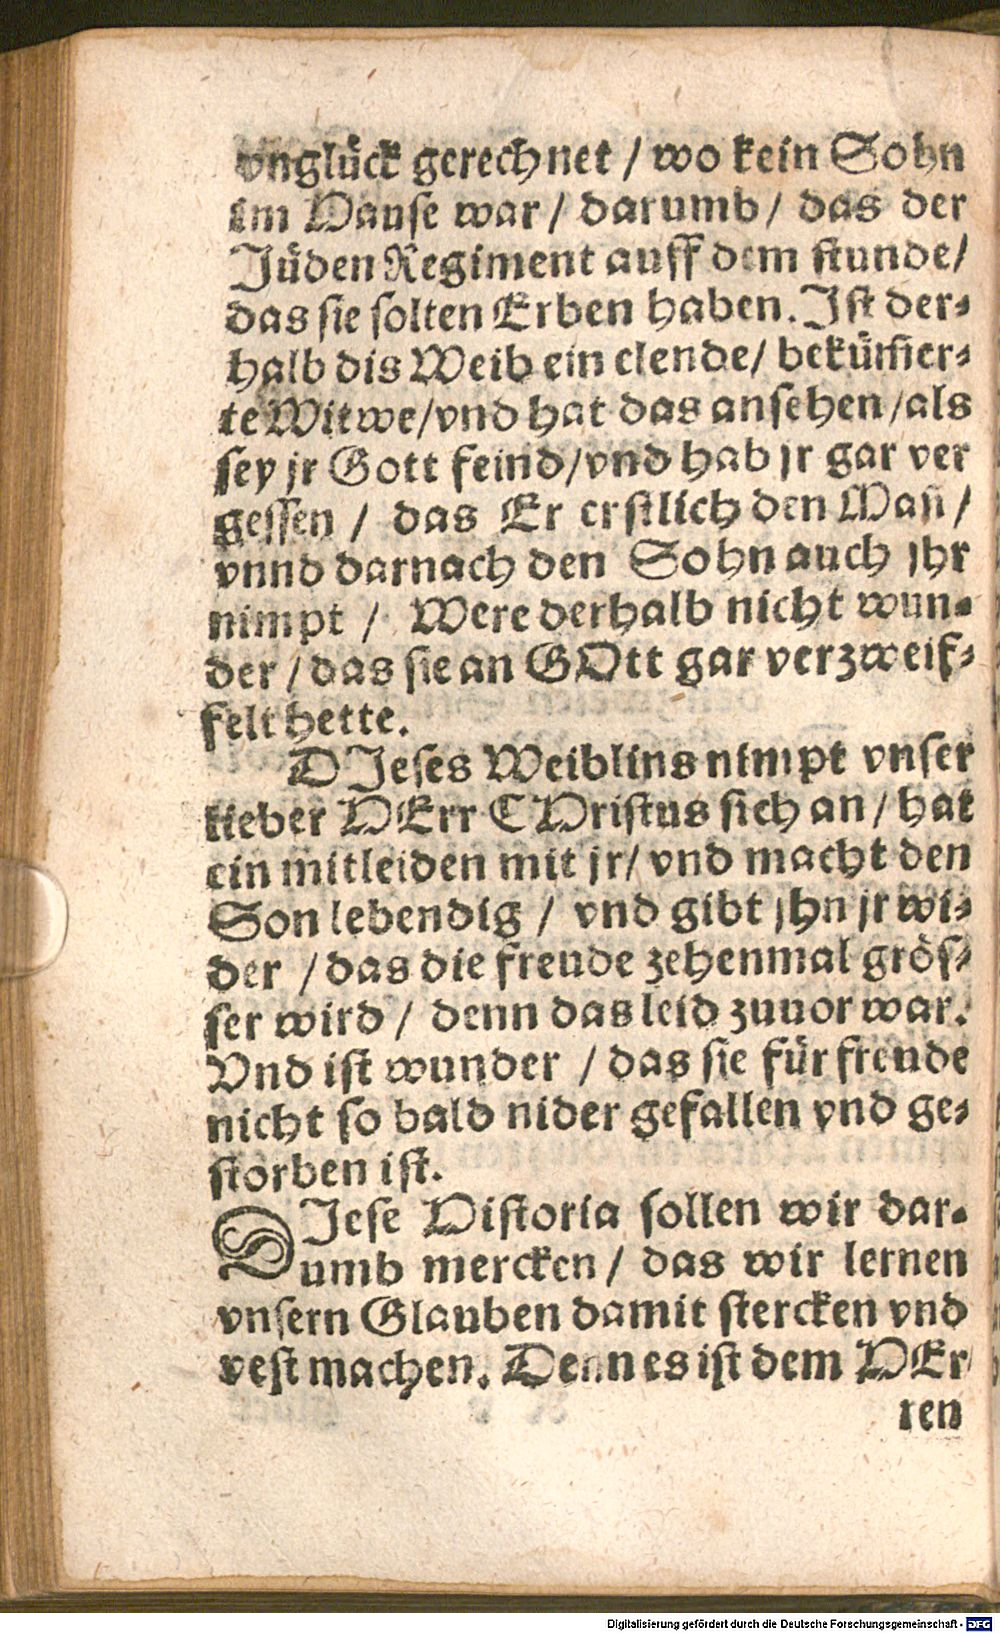 vnglück gerechnet / wo kein Sohn
im Hause war / darumb / das der
Jüden Regiment auff dem stunde /
das sie solten Erben haben. Ist der⸗
halb dis Weib ein elende / bekům̃er⸗
te Witwe / vnd hat das ansehen / als
sey jr Gott feind / vnd hab jr gar ver
gessen / das Er erstlich den Mañ /
vnnd darnach den Sohn auch jhr
nimpt / Were derhalb nicht wun⸗
der / das sie an GOtt gar verzweif⸗
felt hette.
DIeses Weiblins nimpt vnser
lieber HErr CHristus sich an / hat
ein mitleiden mit jr / vnd macht den
Son lebendig / vnd gibt jhn jr wi⸗
der / das die freude zehenmal grös⸗
ser wird / denn das leid zuuor war.
Vnd ist wunder / das sie für freude
nicht so bald nider gefallen vnd ge⸗
storben ist.
DIese Historia sollen wir dar⸗
umb mercken / das wir lernen
vnsern Glauben damit stercken vnd
vest machen. Denn es ist dem HEr
ren
Digitalisierung gefördert durch die Deutsche Forschungsgemeinschaft - DFG